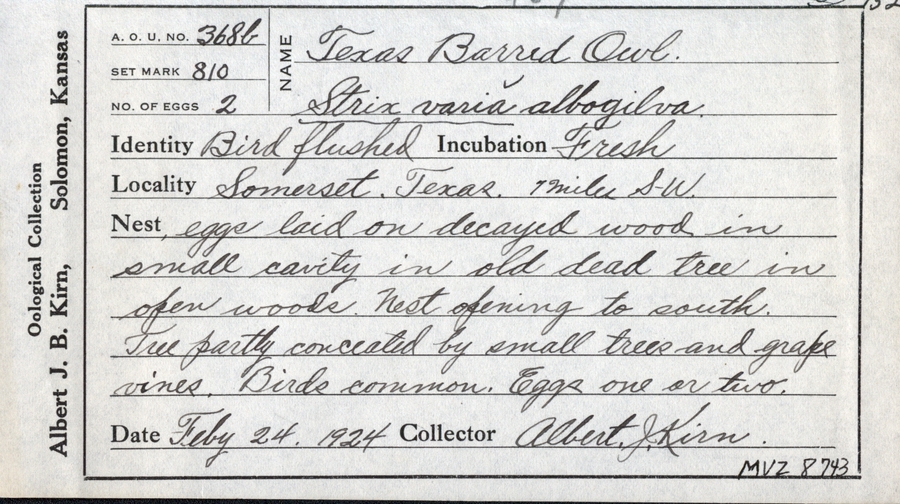 A. O. U. NO. 368b
SET MARK 810
NO. OF EGGS 2
NAME Texas Barred Owl.
Strix varia albogilva.
Identity Bird flushed Incubation Fresh
Locality Somerset. Texas. 7 miles S-W.
Nest, eggs laid on decayed wood in
small cavity in old dead tree in
open woods. Nest opening to south.
Tree partly concealed by small trees and grape
vines. Birds common. Eggs one or two.
Date Feby 24. 1924 Collector Albert. J. Kirn.
MVZ 8743
Oological Collection
Albert J. B. Kirn, Solomon, Kansas